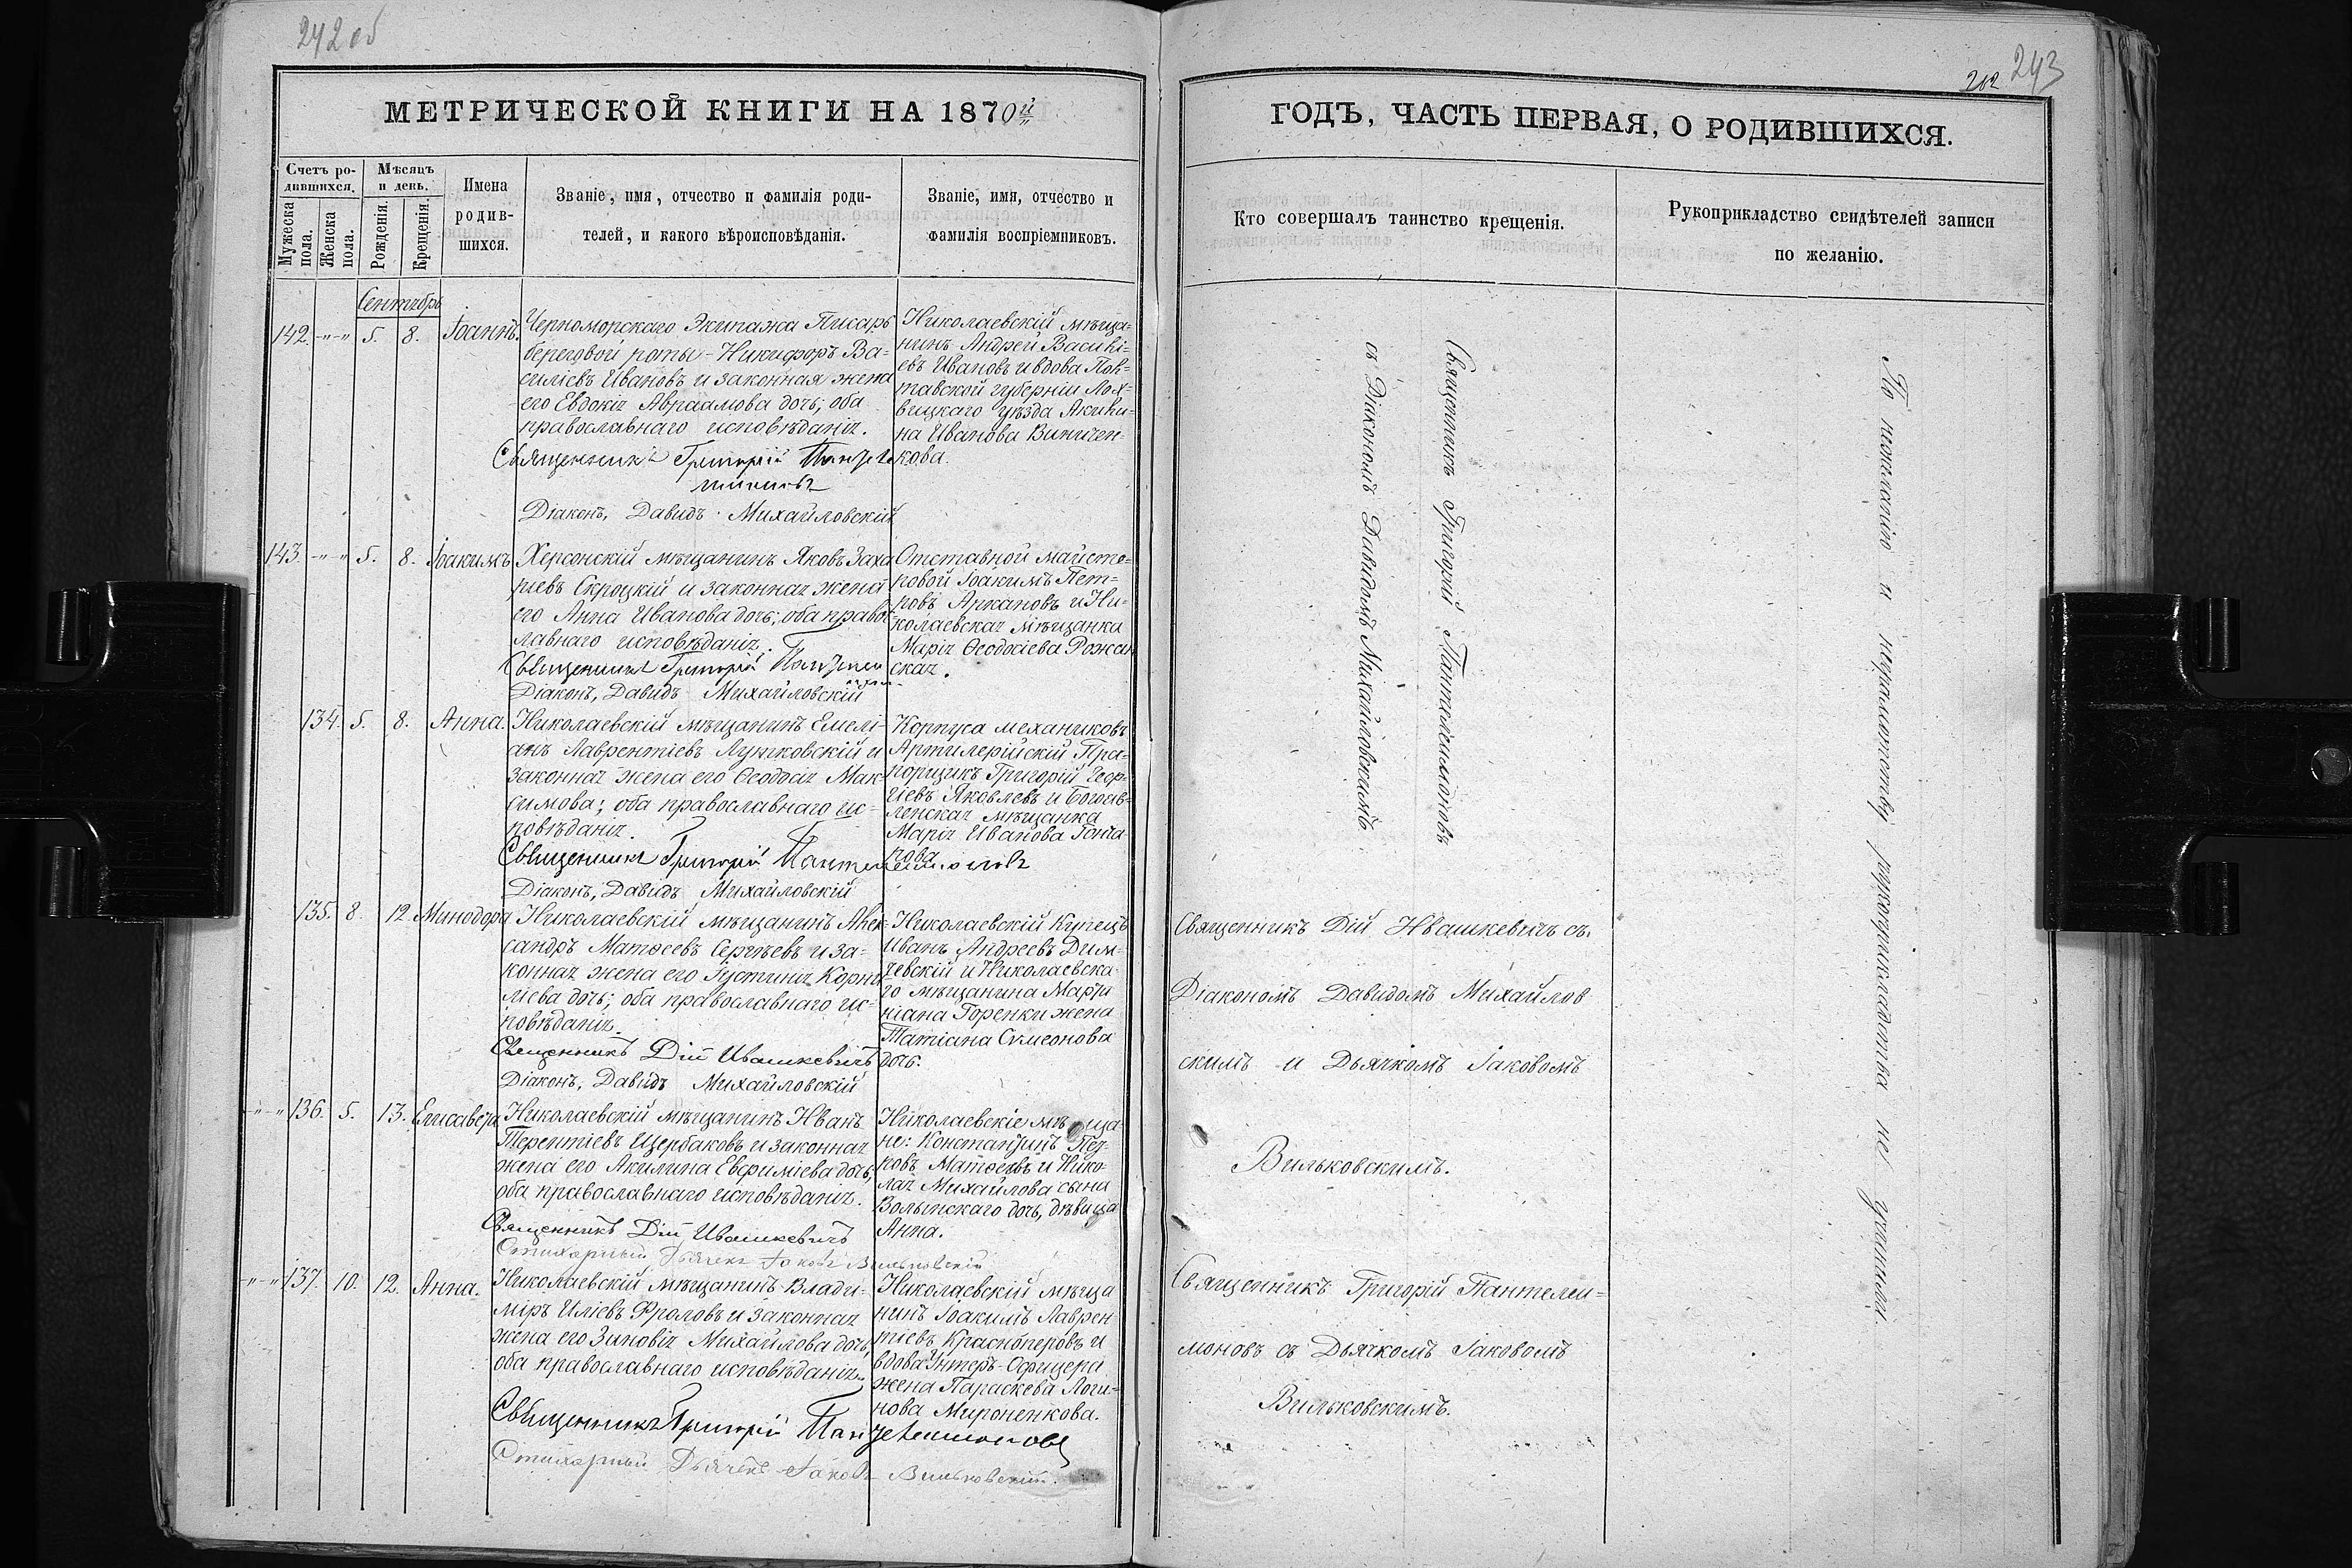 242 об
МЕТРИЧЕСКОЙ КНИГИ НА 1870й
Счетъ ро-
дившихся.
Мужеска
пола.
Женска
пола.
Мѣсяцъ
и день.
Рожденія.
Крещенія.
Имена
родив-
шихся.
Званіе, имя, отчество и фамилія роди-
телей, и какого вѣроисповѣданія.
Званіе, имя, отчество и
фамилія воспріемниковъ.
Сентябрь
142. -"-" 5. 8. Іоаннъ.
Черноморскаго Экипажа Писарь
береговой роты - Никифоръ Ва-
силіевъ Ивановъ и законная жена
его Евдокія Авраамова дочь; оба
православнаго исповѣданія.
Священникъ Григорій Пантеле
имоновъ
Діаконъ, Давидъ Михайловскій
Николаевскій мѣща-
нинъ Андрей Василі-
евъ Ивановъ и вдова Пол-
тавской губерніи Лох-
вицкаго уѣзда Акили-
на Иванова Виничен-
кова.
143. -"-" 5. 8. Іоакимъ
Херсонскій мѣщанинъ Яковъ Заха
ріевъ Скроцкій и законная жена
его Анна Иванова дочь; оба правос-
лавнаго исповѣданія.
Священникъ Григорій Пантелеи
Діаконъ, Давидъ Михайловскій
Отставной майсте-
ровой Іоакимъ Пет-
ровъ Аркановъ и Ни-
колаевская мѣщанка
Марія Ѳеодосіева Рожан
ская.
134. 5. 8. Анна.
Николаевскій мѣщанинъ Емелі-
анъ Лаврентіевъ Лучковскій и
законная жена его Ѳеодосія Мак-
симова; оба православнаго ис-
повѣданія.
Священникъ Григорій Пантелеимоновъ
Діаконъ, Давидъ Михайловскій
Корпуса механиковъ
Артилерійскій Пра-
порщикъ Григорій Геор-
гіевъ Яковлевъ и Богояв-
ленская мѣщанка
Марія Иванова Гонча
рова
135. 8. 12. Минодора
Николаевскій мѣщанинъ Алек-
сандръ Матѳеевъ Сергѣевъ и за-
конная жена его Іустина Корни-
ліева дочь; оба православнаго ис-
повѣданія.
Священникъ Дій Ивашкевичъ
Діаконъ, Давидъ Михайловскій
Николаевскій Купецъ
Иванъ Андреевъ Дим-
чевскій и Николаевска-
го мѣщанина Марти
ніана Горенки жена
Татіана Симеонова
дочь.
-"-" 136. 5. 13. Елисавета
Николаевскій мѣщанинъ Иванъ
Терентіевъ Щербаковъ и законная
жена его Акилина Евфиміева дочь,
оба православнаго исповѣданія.
Священникъ Дій Ивашкевичъ
Стихарный Дьячекъ Іаковъ Вильковскій
Николаевскіе мѣща-
не: Константинъ Пет-
ровъ Матѳеевъ и Нико-
лая Михайлова сына
Волынскаго дочь, дѣвица
Анна.
-"-" 137. 10. 12. Анна.
Николаевскій мѣщанинъ Влади-
міръ Иліевъ Фроловъ и законная
жена его Зиновія Михайлова дочь,
оба православнаго исповѣданія.
Священникъ Григорій Пантелеимоновъ
Стихарный Дьячекъ Іаковъ Вильковскій.
Николаевскій мѣща
нинъ Іоакимъ Лаврен
тіевъ Красноперовъ и
вдова Унтеръ-Офицера
жена Параскева Логи-
нова Мироненкова.
243
ГОДЪ, ЧАСТЬ ПЕРВАЯ, О РОДИВШИХСЯ.
Кто совершалъ таинство крещенія.
Рукоприкладство свидѣтелей записи
по желанію.
Священникъ Григорій Пантелеимоновъ
съ Діакономъ Давидомъ Михайловскимъ
Священникъ Дій Ивашкевичъ съ
Діакономъ Давидомъ Михайлов
скимъ и Дьячкомъ Іаковомъ
Вильковскимъ.
Священникъ Григорій Пантелеи-
моновъ съ Дьячкомъ Іаковомъ
Вильковскимъ.
По нежеланію и неграмотству рукоприкладства не учинили.